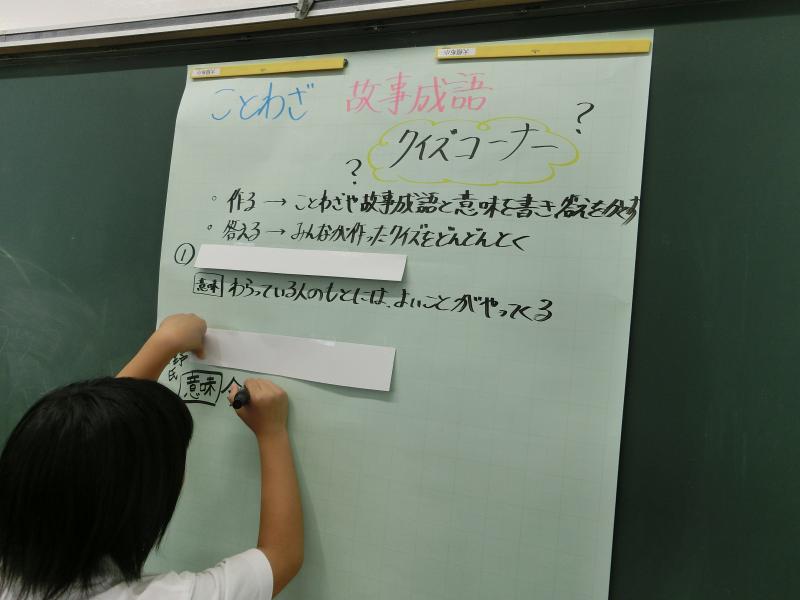 ことわざ 故事成語
? クイズコーナー ?
。作る → ことわざや故事成語と意味を書き答えをかくす
。答える → みんなが作ったクイズをどんどんとく
①
意味 わらっている人のもとには、よいことがやってくる
野
氏
意味